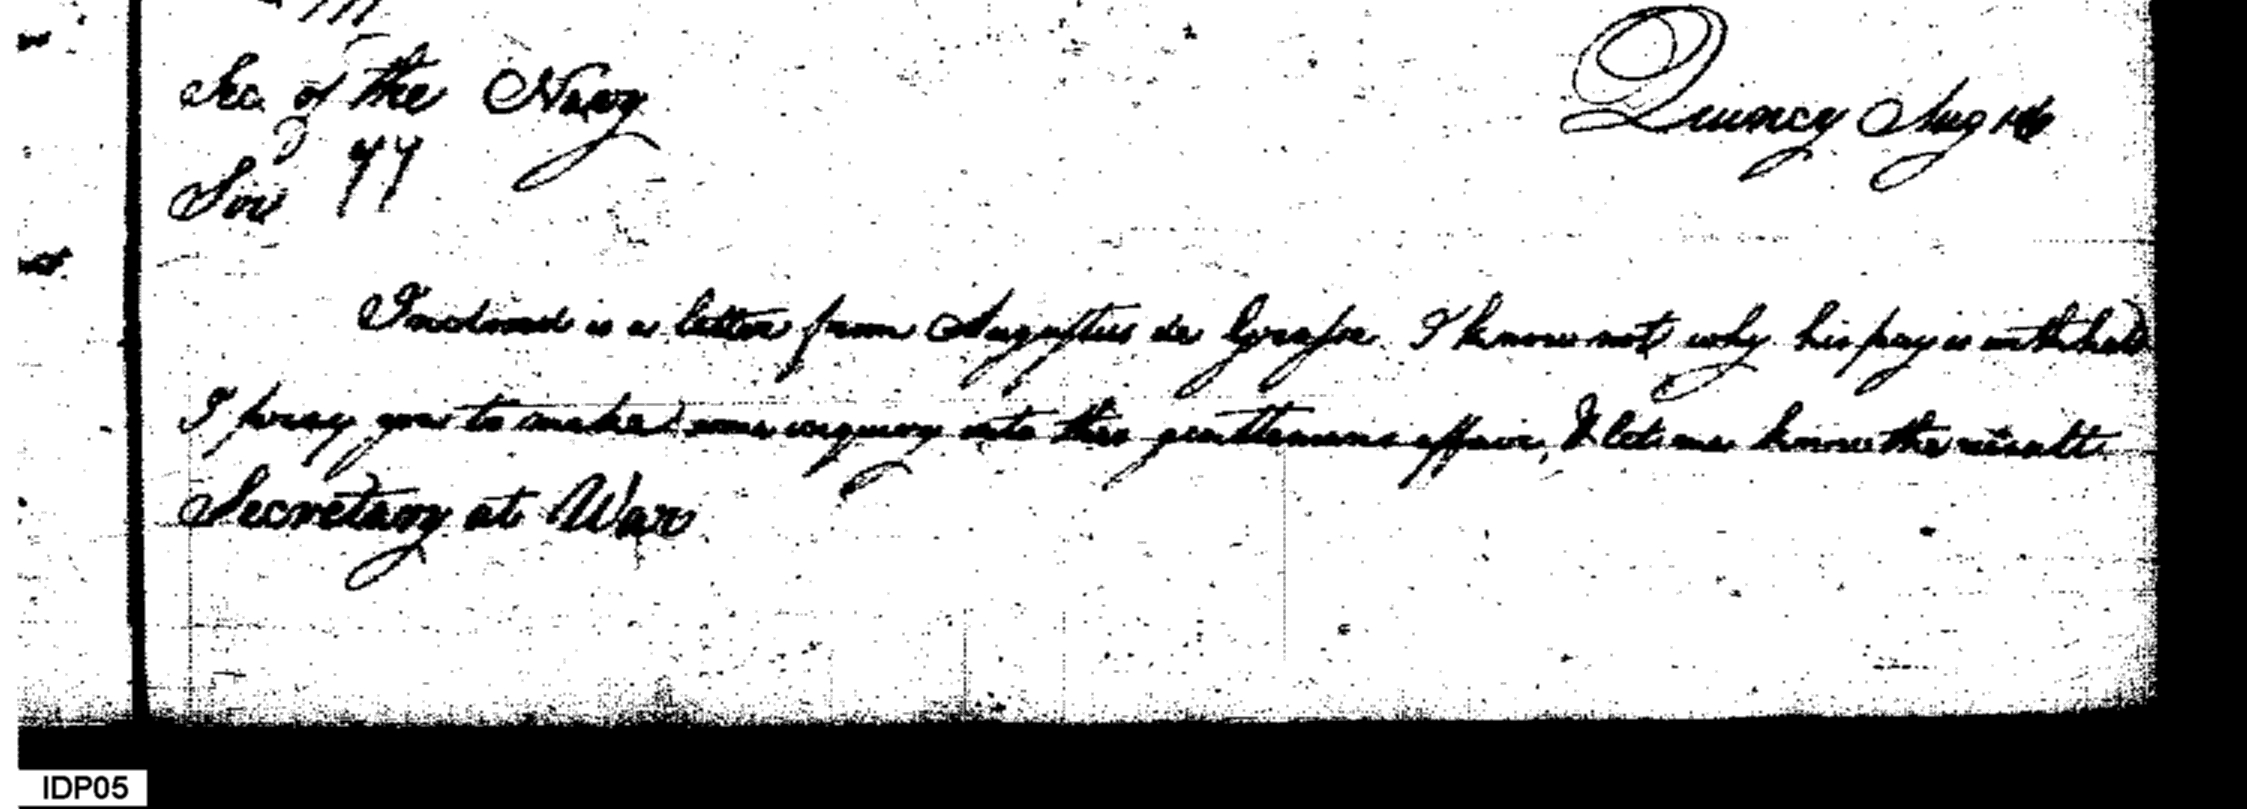 Sec. of the Navy
Quincy Aug 16
Sir 77
Inclosed is a letter from Augustus de Grasse I know not why his pay is withheld
I pray you to make some inquiry into this gentlemans affair, & let me know the result
Secretary at War
IDP05